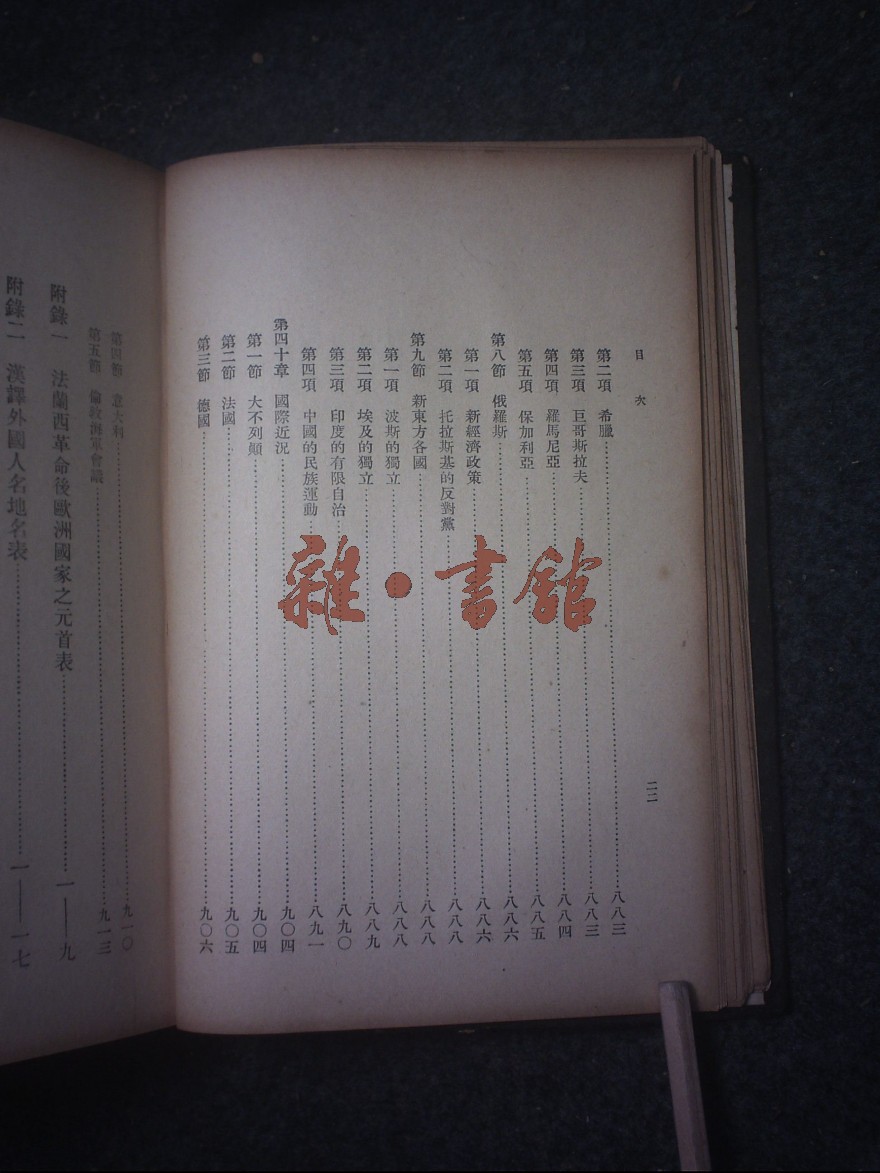 目次
第二項 希臘……八八三
第三項 巨哥斯拉夫……八八三
第四項 羅馬尼亞……八八四
第五項 保加利亞……八八五
第八節 俄羅斯……八八六
第一項 新經濟政策……八八六
第二項 托拉斯基的反對黨……八八八
第九節 新東方各國……八八八
第一項 波斯的獨立……八八八
第二項 埃及的獨立……八八九
第三項 印度的有限自治……八九〇
第四項 中國的民族運動……八九一
第四十章 國際近況……九〇四
第一節 大不列顛……九〇四
第二節 法國……九〇五
第三節 德國……九〇六
二二
第四節 意大利……九一〇
第五節 倫敦海軍會議……九一三
附錄一 法蘭西革命後歐洲國家之元首表……一——九
附錄二 漢譯外國人名地名表……一——一七
雜·書館